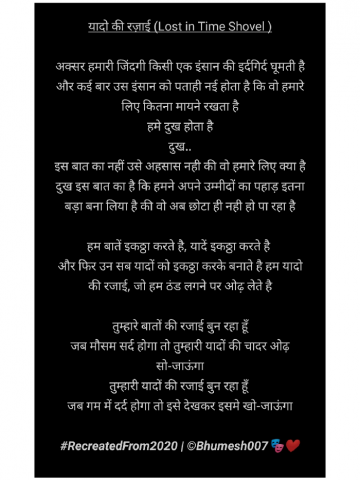 यादो की रज़ाई (Lost in Time Shovel )
अक्सर हमारी जिंदगी किसी एक इंसान की इर्दगिर्द घूमती है
और कई बार उस इंसान को पताही नई होता है कि वो हमारे
लिए कितना मायने रखता है
हमे दुख होता है
दुख..
इस बात का नहीं उसे अहसास नही की वो हमारे लिए क्या है
दुख इस बात का है कि हमने अपने उम्मीदों का पहाड़ इतना
बड़ा बना लिया है की वो अब छोटा ही नही हो पा रहा है
हम बातें इकठ्ठा करते है, यादें इकठ्ठा करते है
और फिर उन सब यादों को इकठ्ठा करके बनाते है हम यादो
की रजाई, जो हम ठंड लगने पर ओढ़ लेते है
तुम्हारे बातों की रजाई बुन रहा हूँ
जब मौसम सर्द होगा तो तुम्हारी यादों की चादर ओढ़
सो-जाऊंगा
तुम्हारी यादों की रजाई बुन रहा हूँ
जब गम में दर्द होगा तो इसे देखकर इसमे खो-जाऊंगा
#RecreatedFrom2020 | ©Bhumesh007 🎭❤️